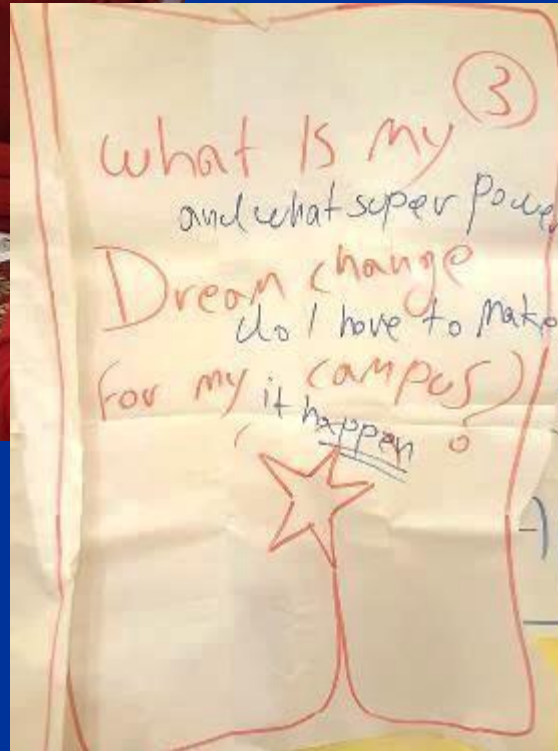 3
What Is my
and what super power
Dream change
do I have to make
for my campus?
it happen